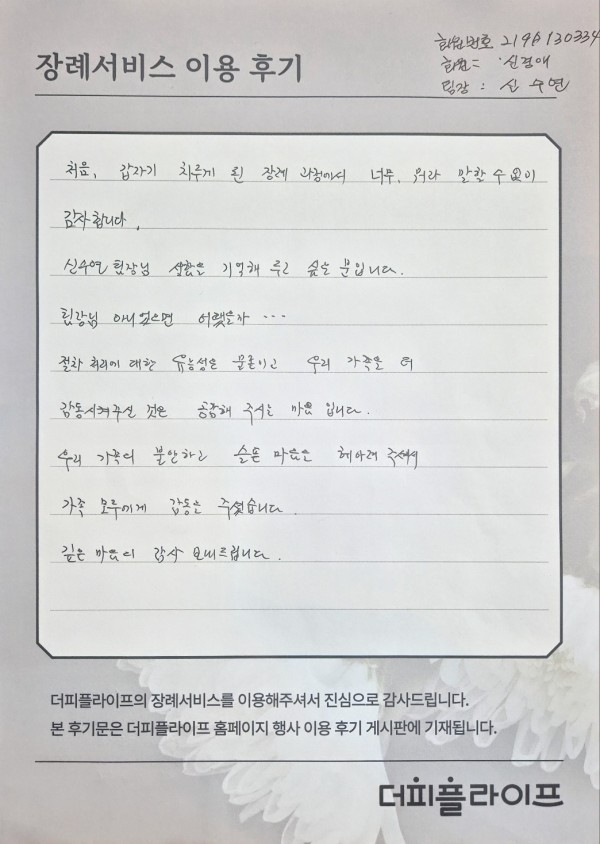 회원번호 2196130334
회원 : 신경애
팀장 : 신수연
장례서비스 이용 후기
처음, 갑자기 치루게 된 장례 과정에서 너무, 뭐라 말할 수 없이
감사합니다.
신수연 팀장님 성함은 기억해 두고 싶은 분입니다.
팀장님 아니었으면 어땠을까 ...
절차 처리에 대한 유능성은 물론이고 우리 가족을 더
감동시켜주신 것은 공감해 주시는 마음 입니다.
우리 가족의 불안하고 슬픈 마음을 헤아려 주셔서
가족 모두에게 감동을 주셨습니다.
깊은 마음의 감사 보내드립니다.
더피플라이프의 장례서비스를 이용해주셔서 진심으로 감사드립니다.
본 후기문은 더피플라이프 홈페이지 행사 이용 후기 게시판에 기재됩니다.
더피플라이프